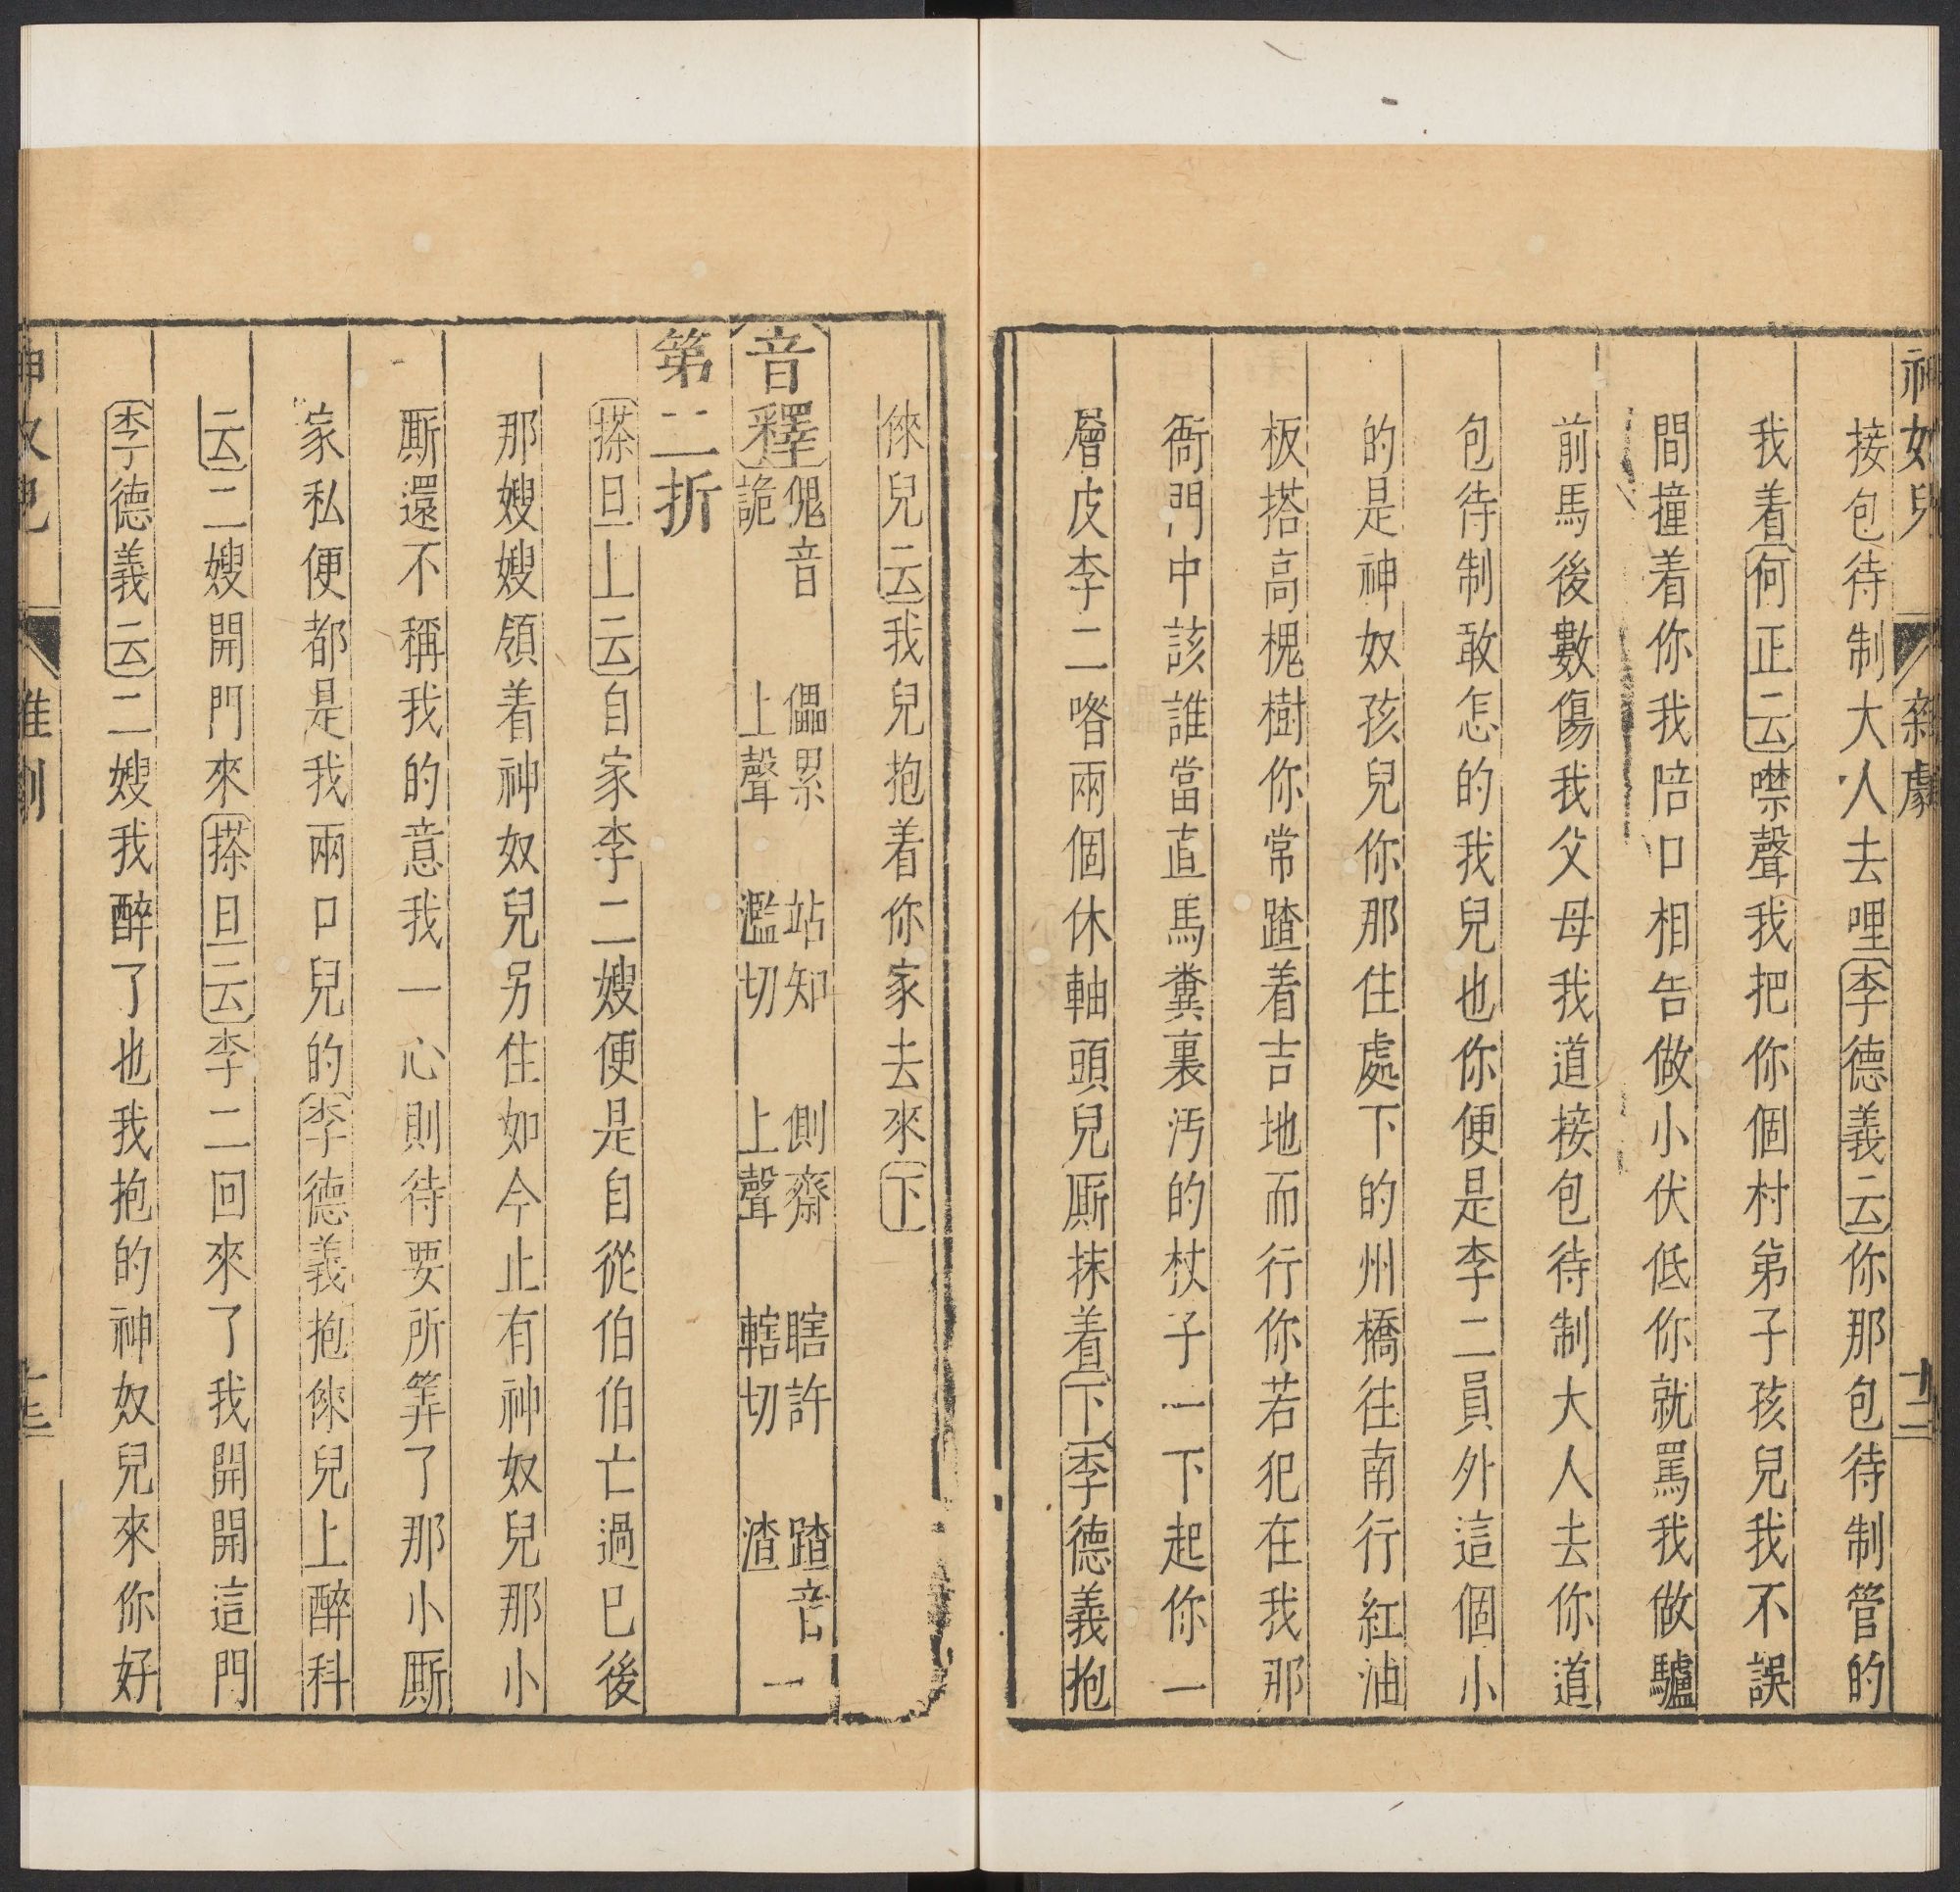 神奴兒 雜劇 十二
接包待制大人去哩李德義云你那包待制管的
我着何正云噤聲我把你個村弟子孩兒我不誤
間撞着你我陪口相告做小伏低你就罵我做驢
前馬後數傷我父母我道接包待制大人去你道
包待制敢怎的我兒也你便是李二員外這個小
的是神奴孩兒你那住處下的州橋往南行紅油
板搭高槐樹你常蹅着吉地而行你若犯在我那
衙門中該誰當直馬糞裏污的杖子一下下起你一
層皮李二喒兩個休軸頭兒厮抹着下李德義抱
俫兒云我兒抱着你家去來下
音釋 傀音詭 儡累上聲 站知濫切 側齋上聲 瞎許轄切 蹅音渣
第二折
搽旦上云自家李二嫂便是自從伯伯亡過已後
那嫂嫂領着神奴兒另住如今止有神奴兒那小
厮還不稱我的意我一心則待要所筭了那小厮
家私便都是我兩口兒的李德義抱俫兒上醉科
云二嫂開門來搽旦云李二回來了我開開這門
李德義云二嫂我醉了也我抱的神奴兒來你好